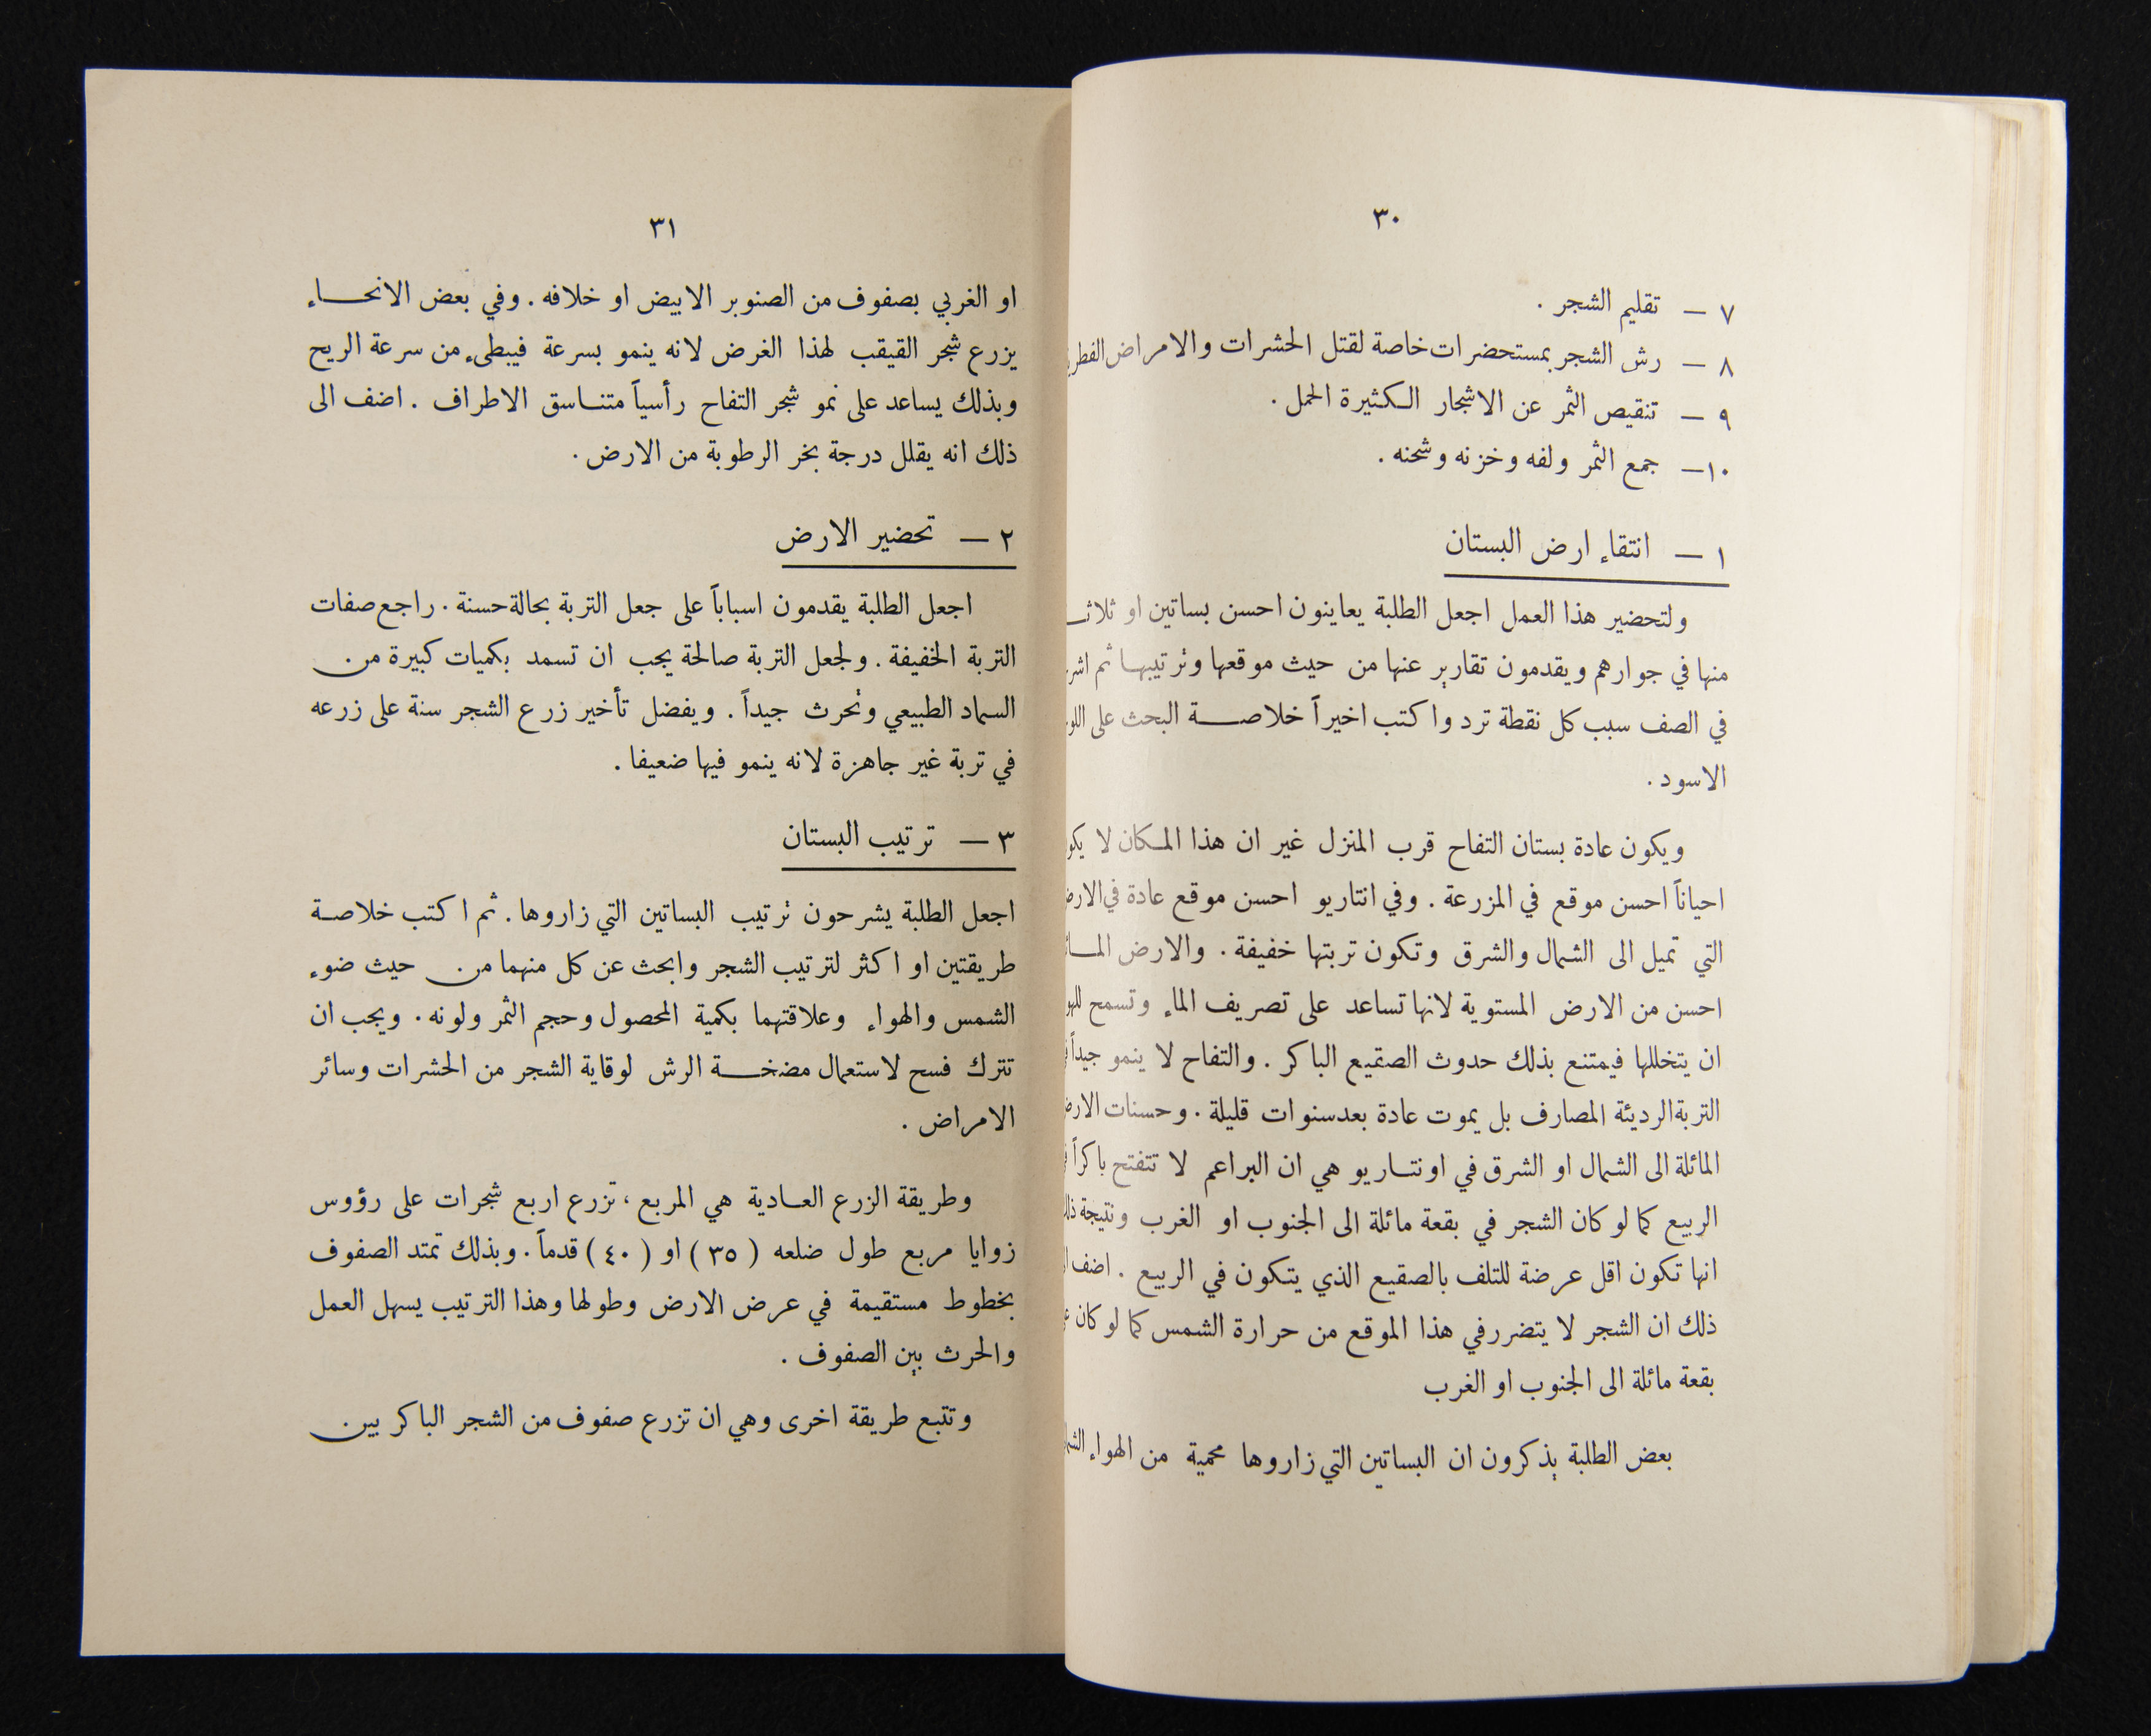 ٣٠
٧ — تقليم الشجر .
٨ — رش الشجر بمستحضرات خاصة لقتل الحشرات والامراض
٩ — تنقيص الثمر عن الاشجار الكثيرة الحمل .
١٠— جمع الثمر ولفه وخزنه وشحنه .
١ — انتقاء ارض البستان
ولتحضير هذا العمل اجعل الطلبة يعاينون احسن بساتين او
منها في جوارهم ويقدمون تقارير عنها من حيث موقعها وترتيبها ثم
في الصف سبب كل نقطة ترد واكتب اخيراً خلاصة البحث على
الاسود .
ويكون عادة بستان التفاح قرب المنزل غير ان هذا المكان لا
احياناً احسن موقع في المزرعة . وفي انتاريو احسن موقع عادة في
التي تميل الى الشمال والشرق وتكون تربتها خفيفة . والارض
احسن من الارض المستوية لانها تساعد على تصريف الماء وتسمح
ان يتخللها فيمتنع بذلك حدوث الصقيع الباكر . والتفاح لا ينمو جيداً
التربة الرديئة المصارف بل يموت عادة بعد سنوات قليلة . وحسنات
المائلة الى الشمال او الشرق في اونتاريو هي ان البراعم لا تتفتح باكراً
الربيع كما لو كان الشجر في بقعة مائلة الى الجنوب او الغرب ونتيجة
انها تكون اقل عرضة للتلف بالصقيع الذي يتكون في الربيع . اضف
ذلك ان الشجر لا يتضرر في هذا الموقع من حرارة الشمس كما لو كان
بقعة مائلة الى الجنوب او الغرب
بعض الطلبة يذكرون ان البساتين التي زاروها محمية من الهواء
٣١
او الغربي بصفوف من الصنوبر الابيض او خلافه . وفي بعض الانحاء
يزرع شجر القيقب لهذا الغرض لانه ينمو بسرعة فيبطىء من سرعة الريح
وبذلك يساعد على نمو شجر التفاح رأسياً متناسق الاطراف . اضف الى
ذلك انه يقلل درجة بخر الرطوبة من الارض .
٢ — تحضير الارض
اجعل الطلبة يقدمون اسباباً على جعل التربة بحالة حسنة . راجع صفات
التربة الخفيفة . ولجعل التربة صالحة يجب ان تسمد بكميات كبيرة من
السماد الطبيعي وتحرث جيداً . ويفضل تأخير زرع الشجر سنة على زرعه
في تربة غير جاهزة لانه ينمو فيها ضعيفا .
٣ — ترتيب البستان
اجعل الطلبة يشرحون ترتيب البساتين التي زاروها . ثم اكتب خلاصة
طريقتين او اكثر لترتيب الشجر وابحث عن كل منهما من حيث ضوء
الشمس والهواء وعلاقتهما بكمية المحصول وحجم الثمر ولونه . ويجب ان
تترك فسح لاستعمال مضخة الرش لوقاية الشجر من الحشرات وسائر
الامراض .
وطريقة الزرع العادية هي المربع ، تزرع اربع شجرات على رؤوس
زوايا مربع طول ضلعه ( ٣٥ ) او ( ٤٠ ) قدماً . وبذلك تمتد الصفوف
بخطوط مستقيمة في عرض الارض وطولها وهذا الترتيب يسهل العمل
والحرث بين الصفوف .
وتتبع طريقة اخرى وهي ان تزرع صفوف من الشجر الباكر بين